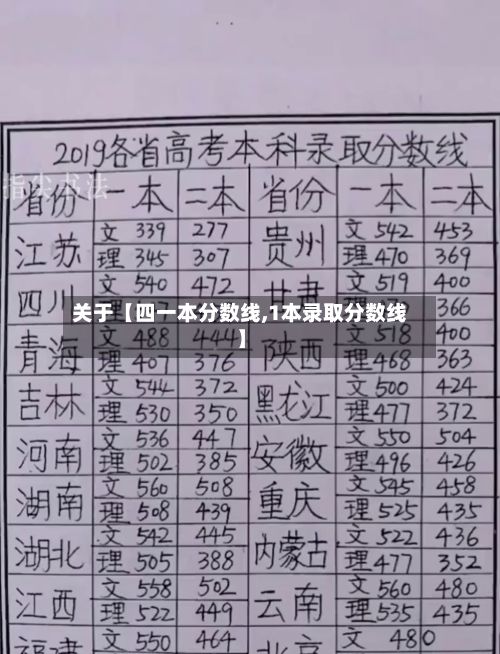 2019各省高考本科录取分数线
指尖书法
省份 一本 二本 省份 一本 二本
江苏 文 339 277 贵州 文 542 453
理 345 307 理 470 369
四川 文 540 472 甘肃 文 519 400
366
关于【四一本分数线,1本录取分数线
】
青海 文 488 444 陕西 文 518 400
理 407 376 理 468 363
吉林 文 544 372 黑龙江 文 500 424
理 530 350 理 477 372
河南 文 536 447 安徽 文 550 504
理 502 385 理 496 426
湖南 文 560 508 重庆 文 545 458
理 508 439 理 525 435
湖北 文 542 445 内蒙古 文 522 436
理 505 388 理 477 352
江西 文 558 502 云南 文 560 480
理 522 449 理 535 435
福建 文 550 464 北京 文 480